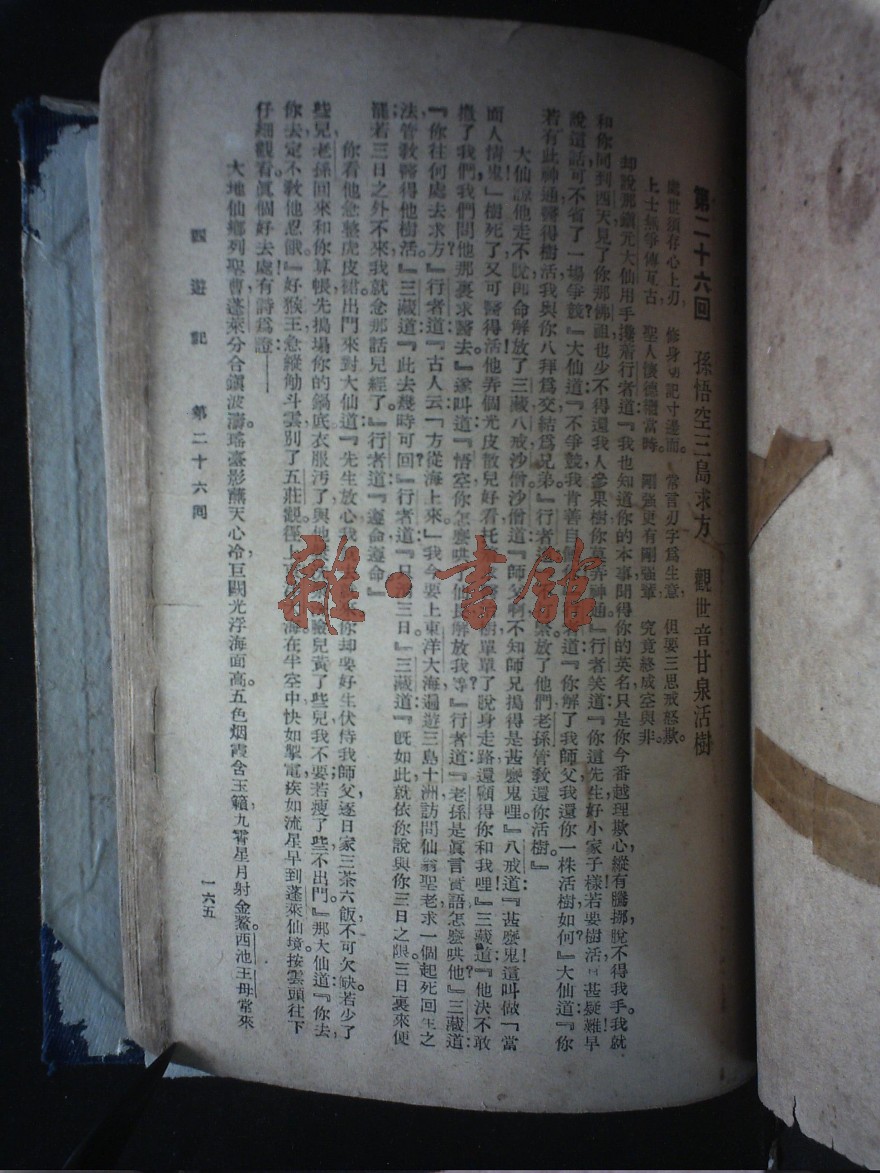 第二十六回　孫悟空三島求方　觀世音甘泉活樹
處世須存心上刃，修身切記寸邊而。常言刃字爲生意，但要三思戒怒欺。
上士無爭傳亙古，聖人懷德繼當時。剛強更有剛強輩，究竟終成空與非。
却說那鎮元大仙用手攙着行者道：『我也知道你的本事，聞得你的英名，只是你今番越理欺心，縱有騰挪，脫不得我手。我就
和你同到西天，見了你那佛祖，也少不得還我人參果樹。你莫弄神通。』行者笑道：『你這先生好小家子樣！若要樹活，有甚疑難！早
說這話，可不省了一場爭競？』大仙道：『不爭競，我肯善自饒
者道：『你解了我師父，我還你一株活樹如何？』大仙道：『你
若有此神通，醫得樹活，我與你八拜爲交，結爲兄弟。』行者道
放了他們，老孫管敎還你活樹。』
大仙諒他走不脫，卽命解放了三藏、八戒、沙僧。沙僧道：『師父啊，不知師兄搗得是甚麽鬼哩。』八戒道：『甚麽鬼！這叫做「當
面人情鬼」！樹死了，又可醫得活？他弄個光皮散兒好看，托
樹，單單了脫身走路，還顧得你和我哩！』三藏道：『他決不敢
撒了我們。我們問他那裏求醫去。』遂叫道：『悟空，你怎麽哄了仙長，解放我等？』行者道：『老孫是眞言實語，怎麽哄他？』三藏道：
『你往何處去求方？』行者道：『古人云：「方從海上來。」我今要上東洋大海，遍遊三島十洲，訪問仙翁聖老，求一個起死回生之
法，管敎醫得他樹活。』三藏道：『此去幾時可回？』行者道：『只消三日。』三藏道：『旣如此，就依你說，與你三日之限。三日裏來便
罷；若三日之外不來，我就念那話兒經了。』行者道：『遵命，遵命。』
你看他急整虎皮裙，出門來對大仙道：『先生放心，我
你却要好生伏侍我師父，逐日家三茶六飯，不可欠缺。若少了
些兒，老孫回來和你算帳，先搗塌你的鍋底。衣服汚了，與他
臉兒黃了些兒，我不要；若瘦了些，不出門。』那大仙道：『你去，
你去，定不敎他忍餓。』好猴王，急縱觔斗雲，別了五莊觀，徑上
海。在半空中，快如掣電，疾如流星，早到蓬萊仙境。按雲頭往下
仔細觀看，眞個好去處。有詩爲證：——
大地仙鄉列聖曹，蓬萊分合鎭波濤。瑤臺影蘸天心冷，巨闕光浮海面高。五色烟霞含玉籟，九霄星月射金鰲。西池王母常來
西遊記　第二十六回
一六五
雜·書館